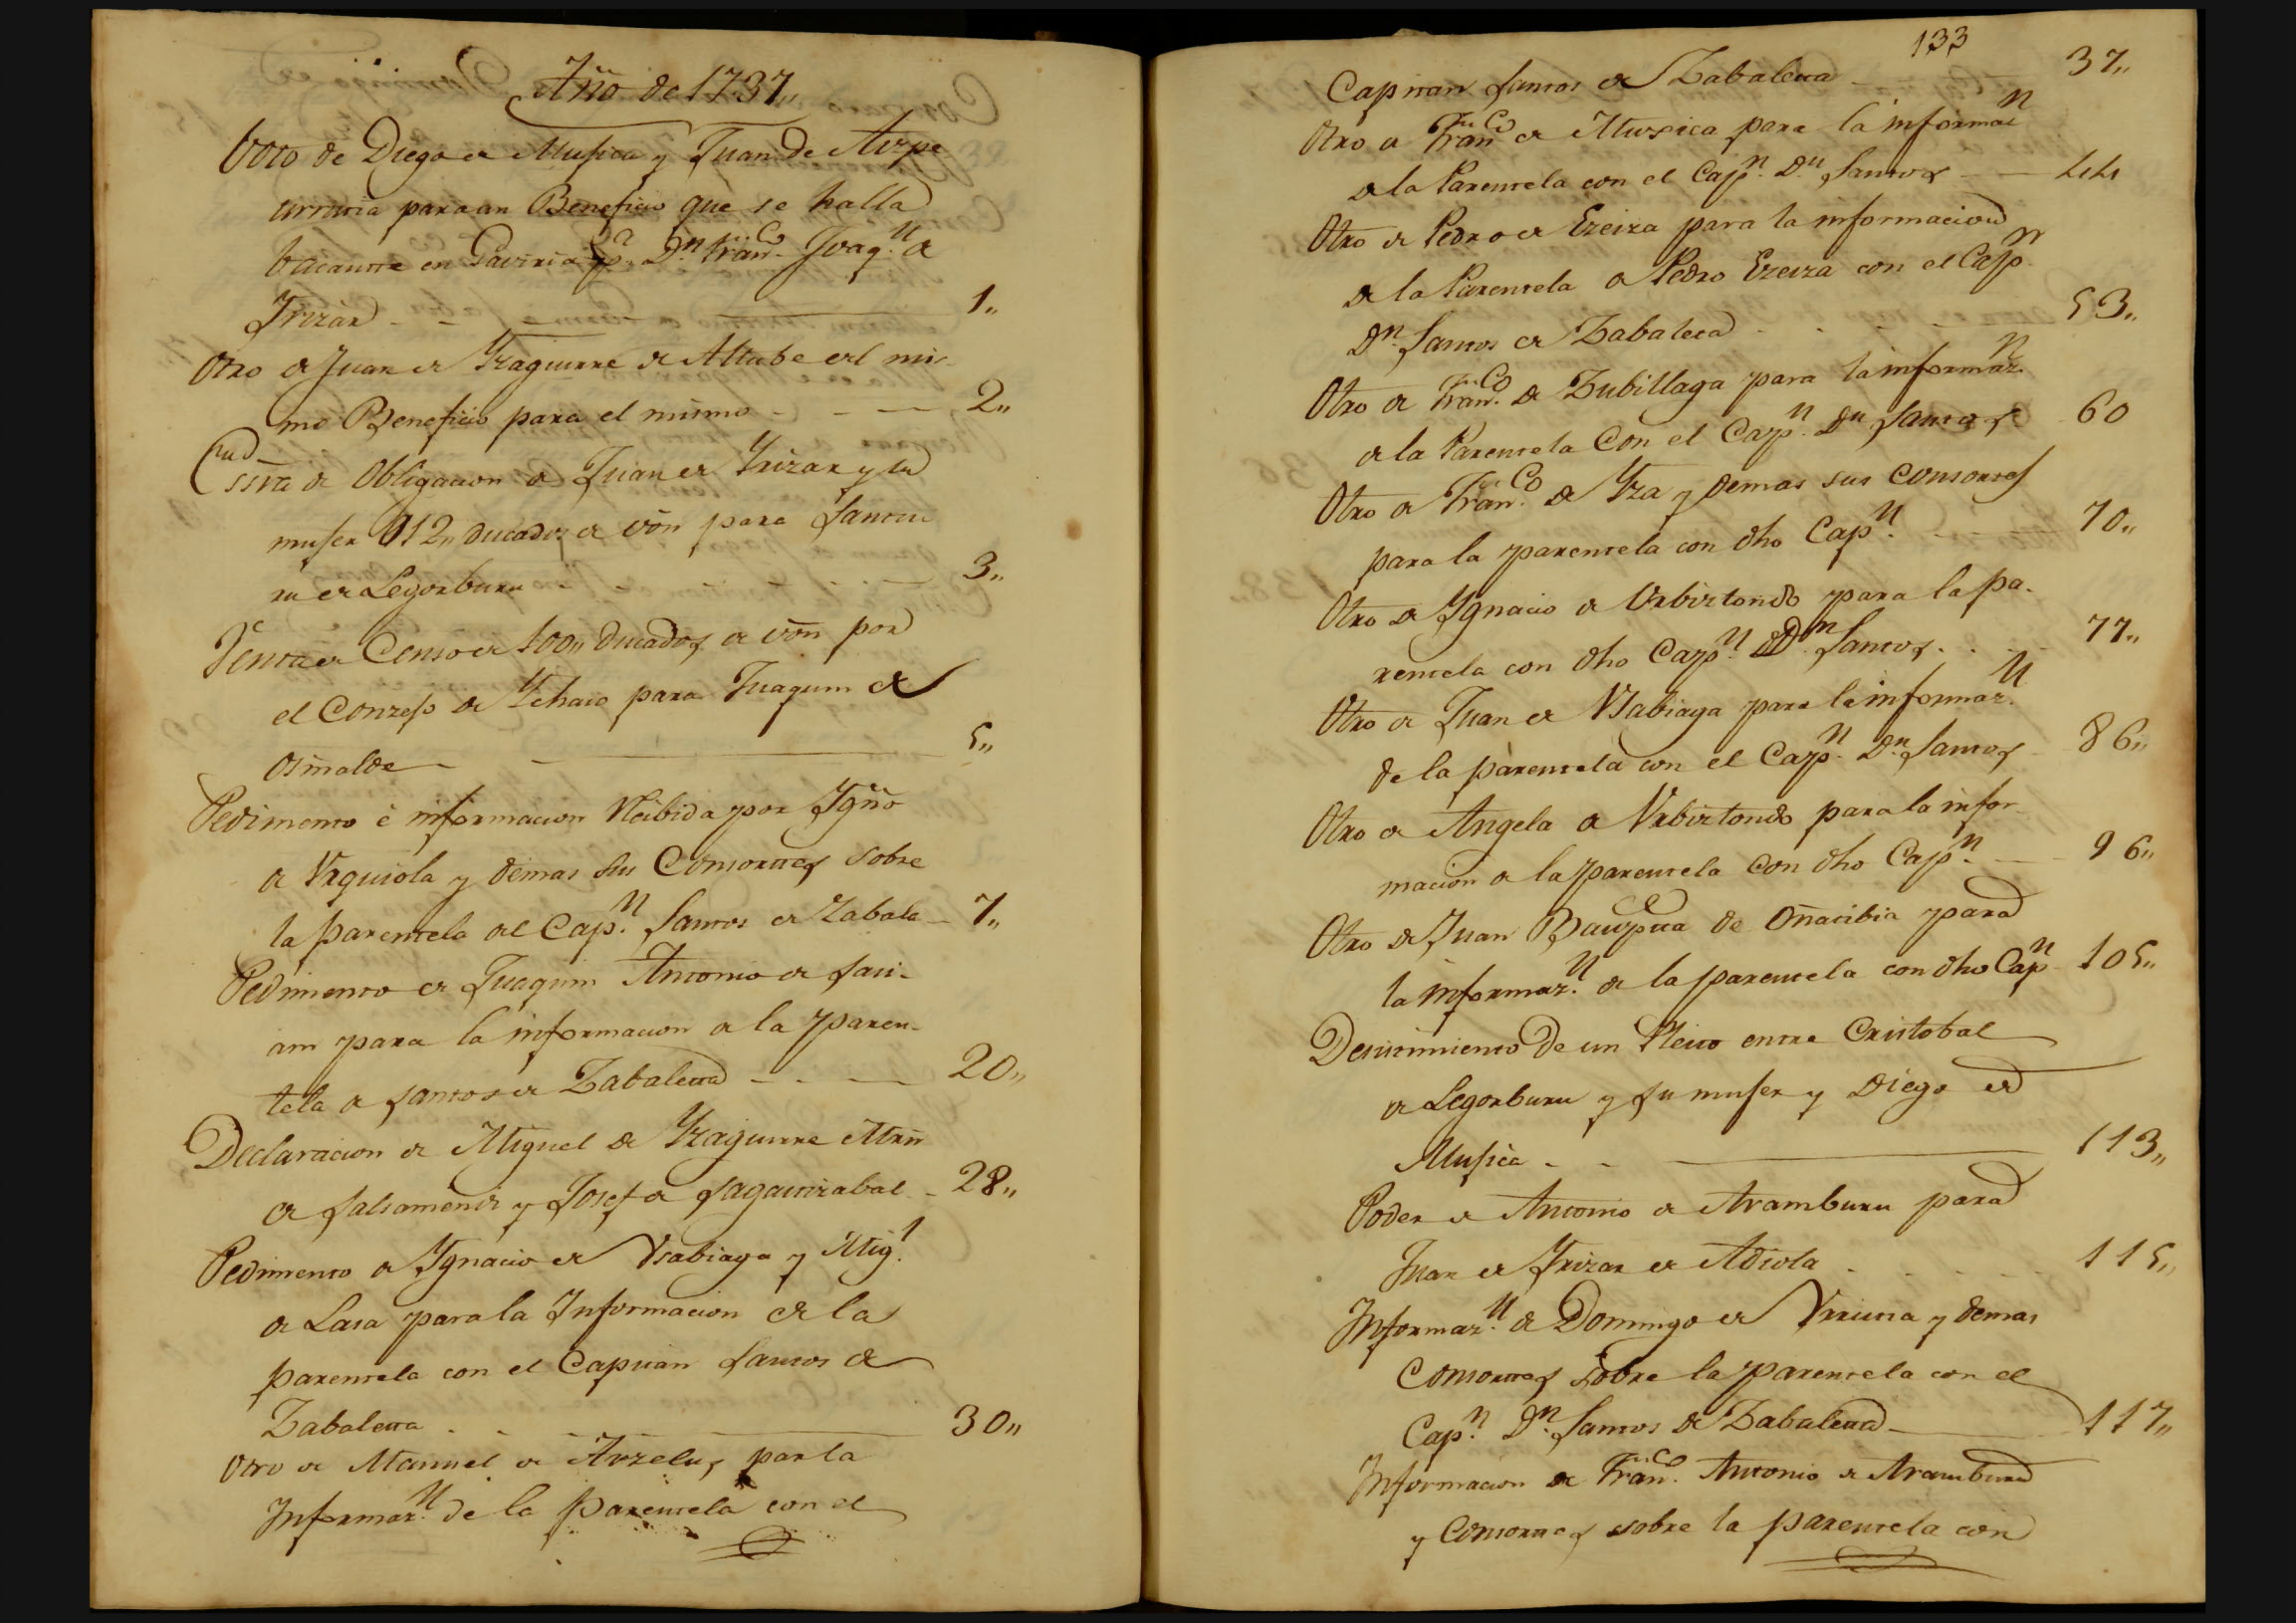 Año de 1737,,
Voto de Diego de Musica y Juan de Aizpe
urrutia para un Beneficio que se halla
bacante en Gaviria pa. Dn. Franco. Joaqn. de
Yrizar 1,,
Otro de Juan de Yzaguirre de Altube del mis
mo Beneficio para el mismo 2,,
Essra de Obligacion de Juan de Yrizar y su
muger 112,, ducados de von para Santu
ru de Legorburu 3,,
Venta de Censo de 100,, Ducados de von por
el Conzejo de Ychaso para Juaquin de
Osinalde 5,,
Pedimento è informacion Rēibida por Ygno
de Vrquiola y demas sus Consortes sobre
la parentela del Capn. Santos de Zabala 7,,
Pedimento de Juaquin Antonio de Sari-
ain para la informacion de la paren-
tela de Santos de Zabaleta 20,,
Declaracion de Miguel de Yzaguirre Mrn
de Salsamendi y Josefa Sagastizabal 28,,
Pedimento de Ygnacio de Vsabiaga y Migl.
de Lasa para la Informacion de la
parentela con el Capitan Santos de
Zabaleta 30,,
Otro de Manuel de Arzelus para la
Informazn. de la parentela con el
133
Capitan Santos de Zabaleta 37,,
Otro de Franco de Muxica para la informan
de la Parentela con el Capn. Dn. Santos 44
Otro de Pedro de Ezeiza para la informacion
de la Parentela de Pedro Ezeiza con el Capn.
Dn. Santos de Zabaleta 53,,
Otro de Franco. de Zubillaga para la informazn.
de la Parentela Con el Capn. Dn Santos 60
Otro de Franco. de Yza y demas sus Consortes
para la parentela con dho Capn. 70,,
Otro de Ygnacio de Vrbiztondo para la pa-
rentela con dho Capn. Dn. Santos 77,,
Otro de Juan de Vsabiaga para la informazn.
de la parentela con el Capn. Dn. Santos 86,,
Otro de Angela de Vrbiztondo para la infor
macion de la parentela con dho Capn. 96,,
Otro de Juan Baupta de Oñatibia para
la informazn. de la parentela con dho Capn 105,,
Desistimiento de un Pleito entre Cristobal
de Legorburu y su muger y Diego de
Musica 113,,
Poder de Antonio de Aramburu para
Juan de Yrizar de Adiola 115,,
Informazn. de Domingo de Vrrutia y demas
Consortes sobre la parentela con el
Capn. Dn. Santos de Zabaleta 117,,
Informacion de Franco. Antonio de Aramburu
y Consortes sobre la parentela con